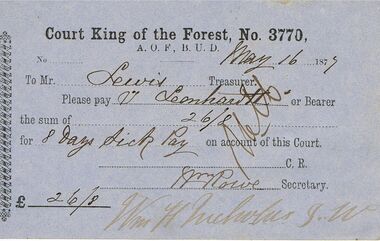 Court King of the Forest, No. 3770,
A. O. F., B. U. D.
No May 16 1877
To Mr. Lewis Treasurer.
Please pay V Leonhardt or Bearer
the sum of 26/8
for 8 Days Sick Pay on account of this Court.
C. R.
Wm Rowe Secretary.
£ 26/8
Wm H Nicholas J. W